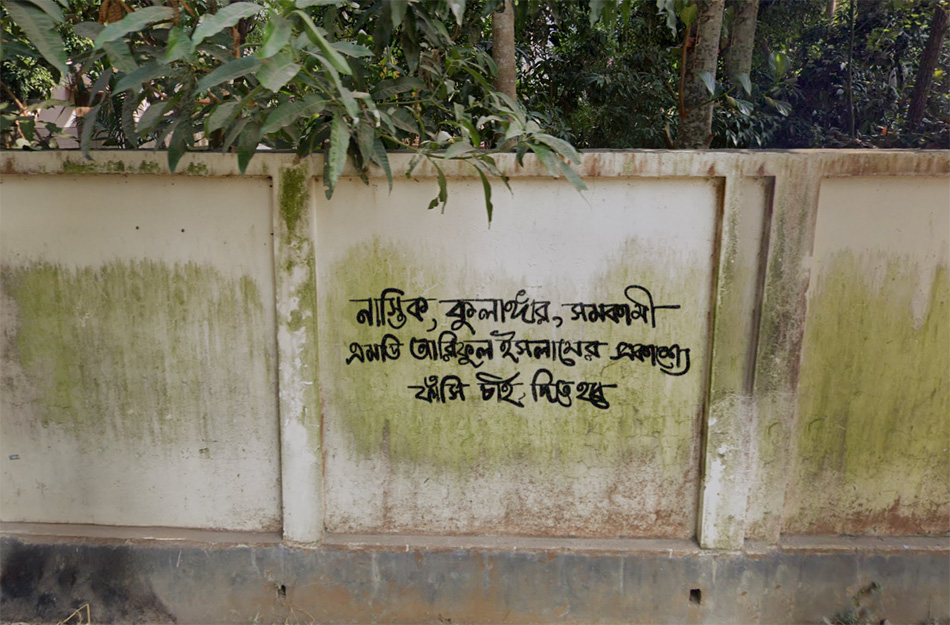 নাস্তিক, কুলাঙ্গার, সমকামী
এমডি আরিফুল ইসলামের প্রকাশ্যে
ফাঁসি চাই, দিতে হবে